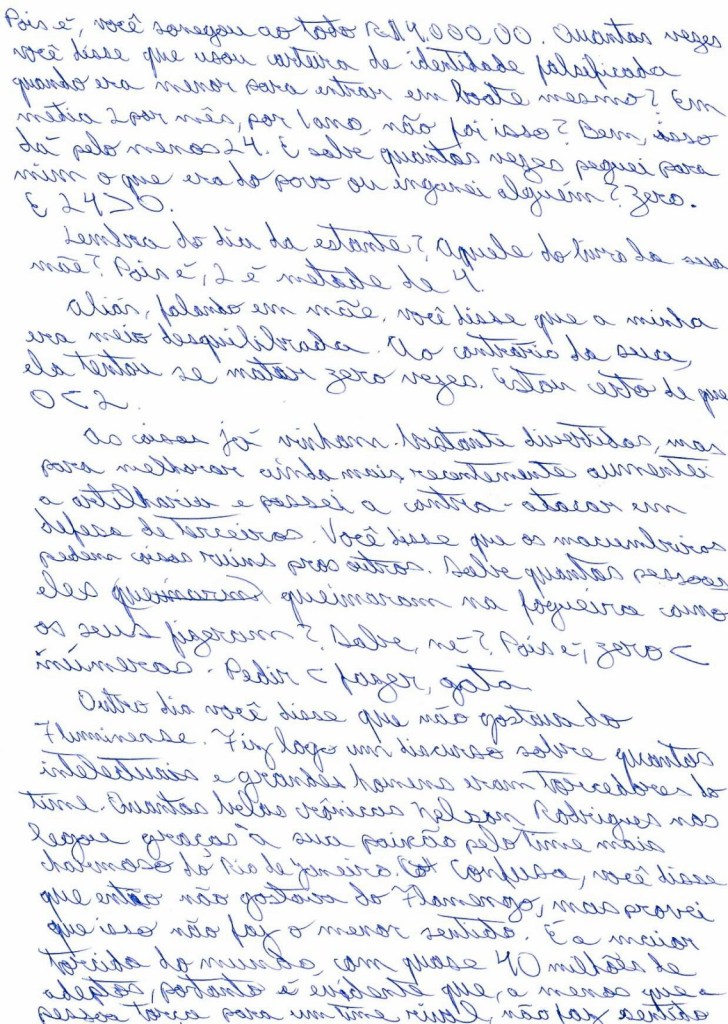 Pois é, você sonegou ao todo R$4.000,00. Quantas vezes
você disse que usou carteira de identidade falsificada
quando era menor para entrar em boate mesmo? Em
média 2 por mês, por 1 ano, não foi isso? Bem, isso
dá pelo menos 24. E sabe quantas vezes peguei para
mim o que era do povo ou enganei alguém? Zero.
E 24>0.
Lembra do dia da estante? Aquele do livro da sua
mãe? Pois é, 2 é metade de 4.
Aliás, falando em mãe, você disse que a minha
era meio desequilibrada. Ao contrário da sua,
ela tentou se matar zero vezes. Estou certo de que
0<2.
As coisas já vinham bastante divertidas, mas
para melhorar ainda mais recentemente aumentei
a artilharia e passei a contra-atacar em
defesa de terceiros. Você disse que os macumbeiros
pedem coisas ruins pros outros. Sabe quantas pessoas
eles queimaram na fogueira como
os seus fizeram? Sabe, né? Pois é, zero <
inúmeras. Pedir < fazer, gata
Outro dia você disse que não gostava do
Fluminense. Fiz logo um discurso sobre quantos
intelectuais e grandes homens eram torcedores do
time. Quantas belas crônicas Nelson Rodrigues nos
legou graças à sua paixão pelo time mais
charmoso do Rio de Janeiro. Confusa, você disse
que então não gostava do Flamengo, mas provei
que isso não faz o menor sentido. É a maior
torcida do mundo, com quase 40 milhões de
adeptos, portanto é evidente que, a menos que a
pessoa torça para um time rival, não faz sentido